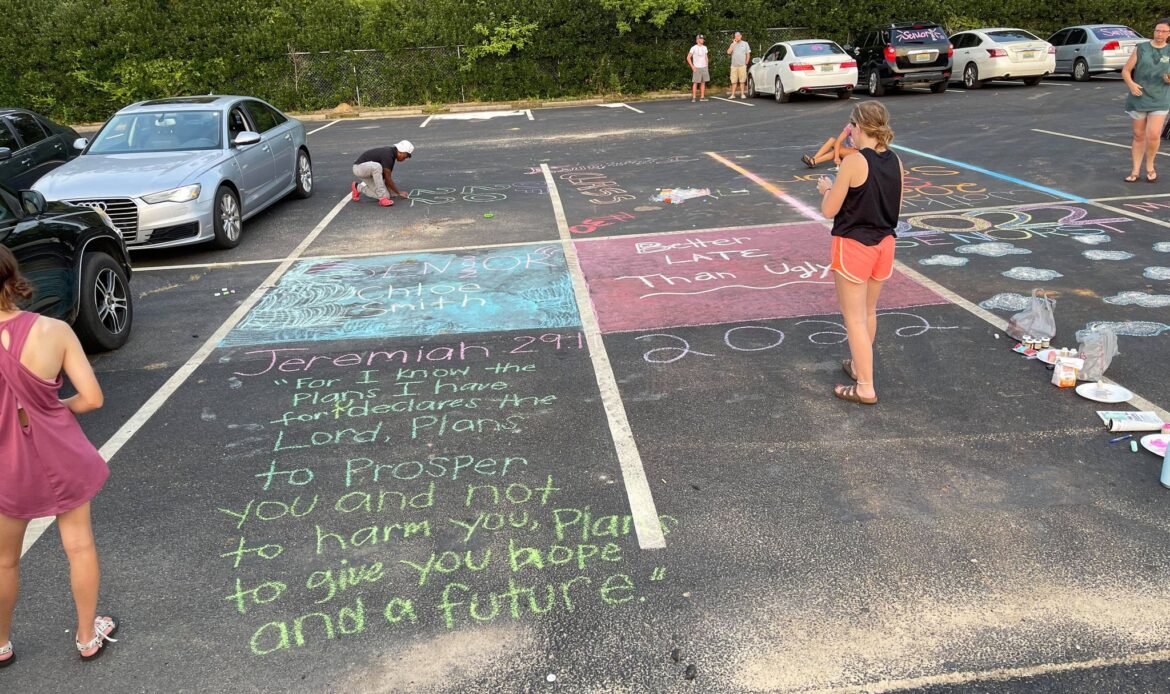 Senior
SENIOR
Chloe
Smith
Better
LATE
Than Ugly
2022
SENIOR
2022
Jeremiah 29:1
"For I know the
Plans I have
for declares the
Lord, Plans
to Prosper
you and not
to harm you, Plans
to give you hope
and a future."